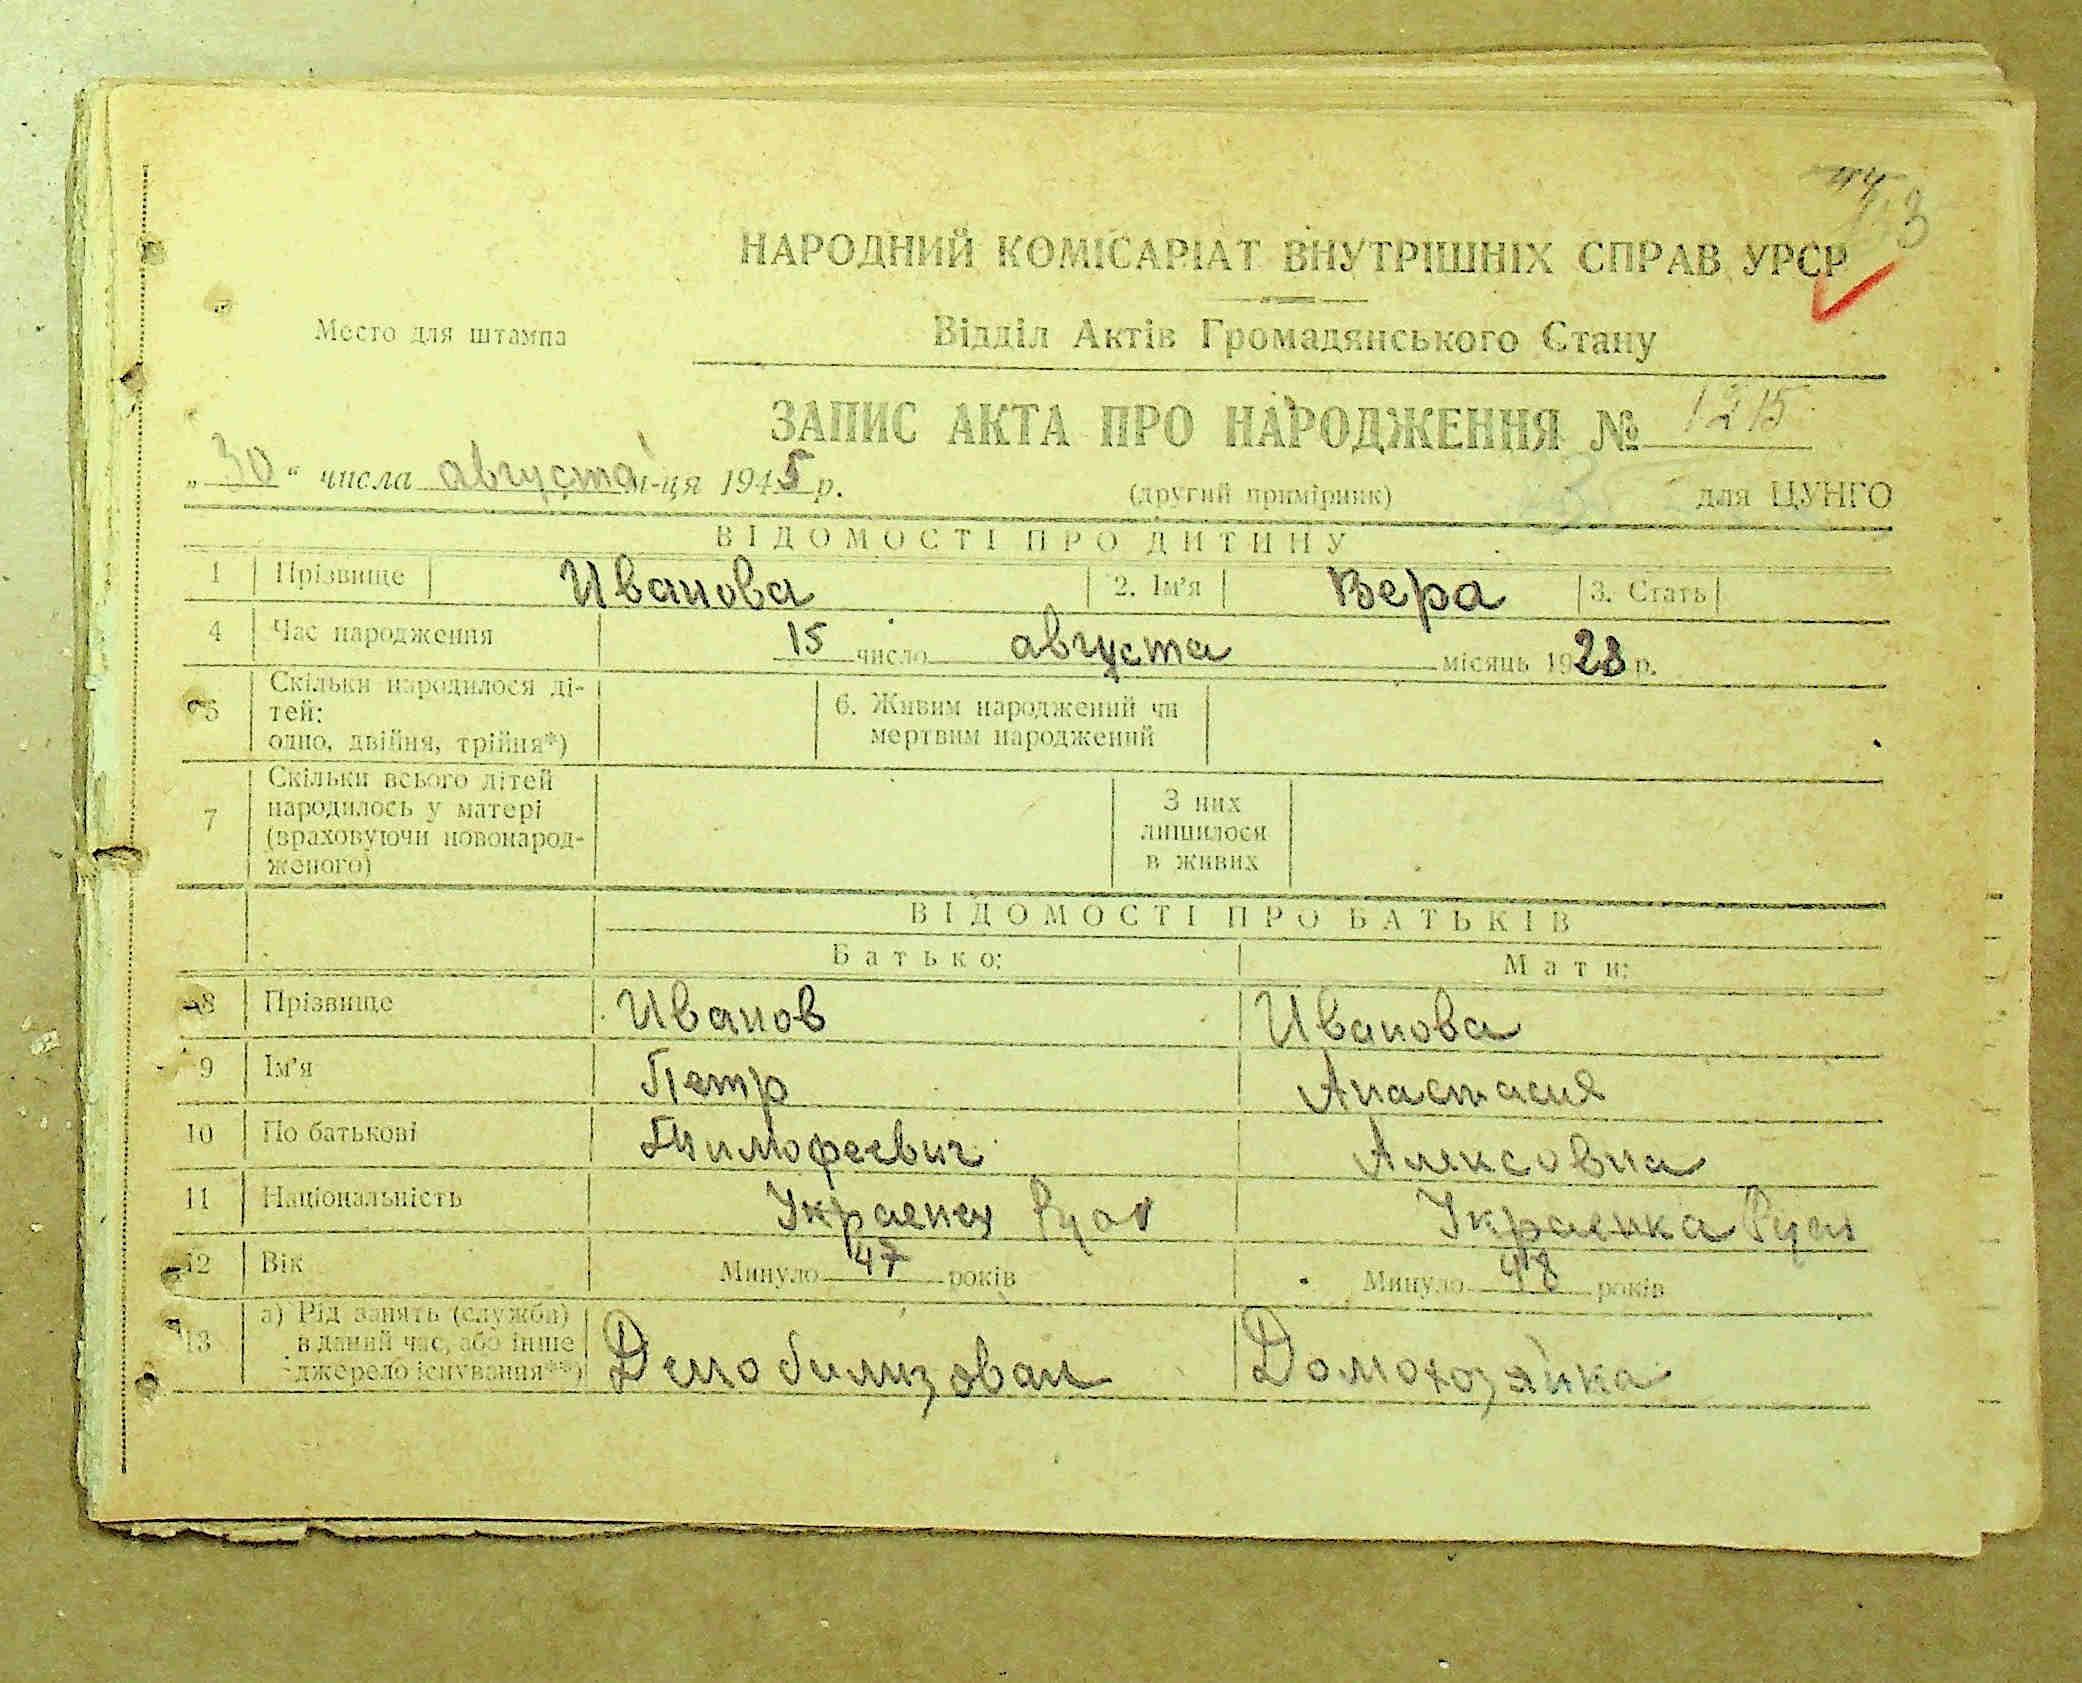 НАРОДНИЙ КОМІСАРІАТ ВНУТРІШНІХ СПРАВ УРСР
Место для штампа
Відділ Актів Громадянського Стану
ЗАПИС АКТА ПРО НАРОДЖЕННЯ № 1215
„30“ числа августа м-ця 1945 р.
(другий примірник)
для ЦУНГО
ВІДОМОСТІ ПРО ДИТИНУ
1 Прізвище Иванова 2. Ім'я Вера 3. Стать
4 Час народження 15 число августа місяць 1928 р.
5 Скільки народилося ді-
тей:
одно, двійня, трійня*)
6. Живим народжений чи
мертвим народжений
7 Скільки всього дітей
народилось у матері
(враховуючи новонарод-
женого)
З них
лишилося
в живих
ВІДОМОСТІ ПРО БАТЬКІВ
Батько: Мати:
8 Прізвище Иванов Иванова
9 Ім'я Петр Анастасия
10 По батькові Тимофеевич Алексовна
11 Національність
12 Вік Минуло 47 років Минуло 48 років
13 а) Рід занять (служба)
в даний час, або інше
джерело існування**)
Демобилизован Домохозяйка